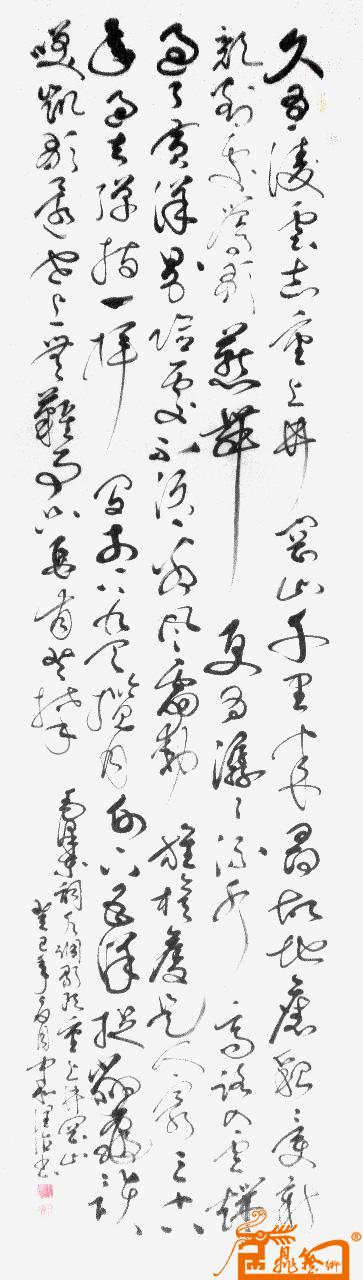 久有凌雲志重上井岡山千里来尋故地舊貌變新
顏到處鶯歌燕舞更有潺々流水高路入雲端
過了黃洋界險處不須看風雷動旌旗奮是人寰三十八
年過去彈指一揮間可上九天攬月可下五洋捉鱉談
笑凱歌還世上無難事只要肯登攀
毛澤東詞水調歌頭重上井岡山
癸巳年月書
藝術